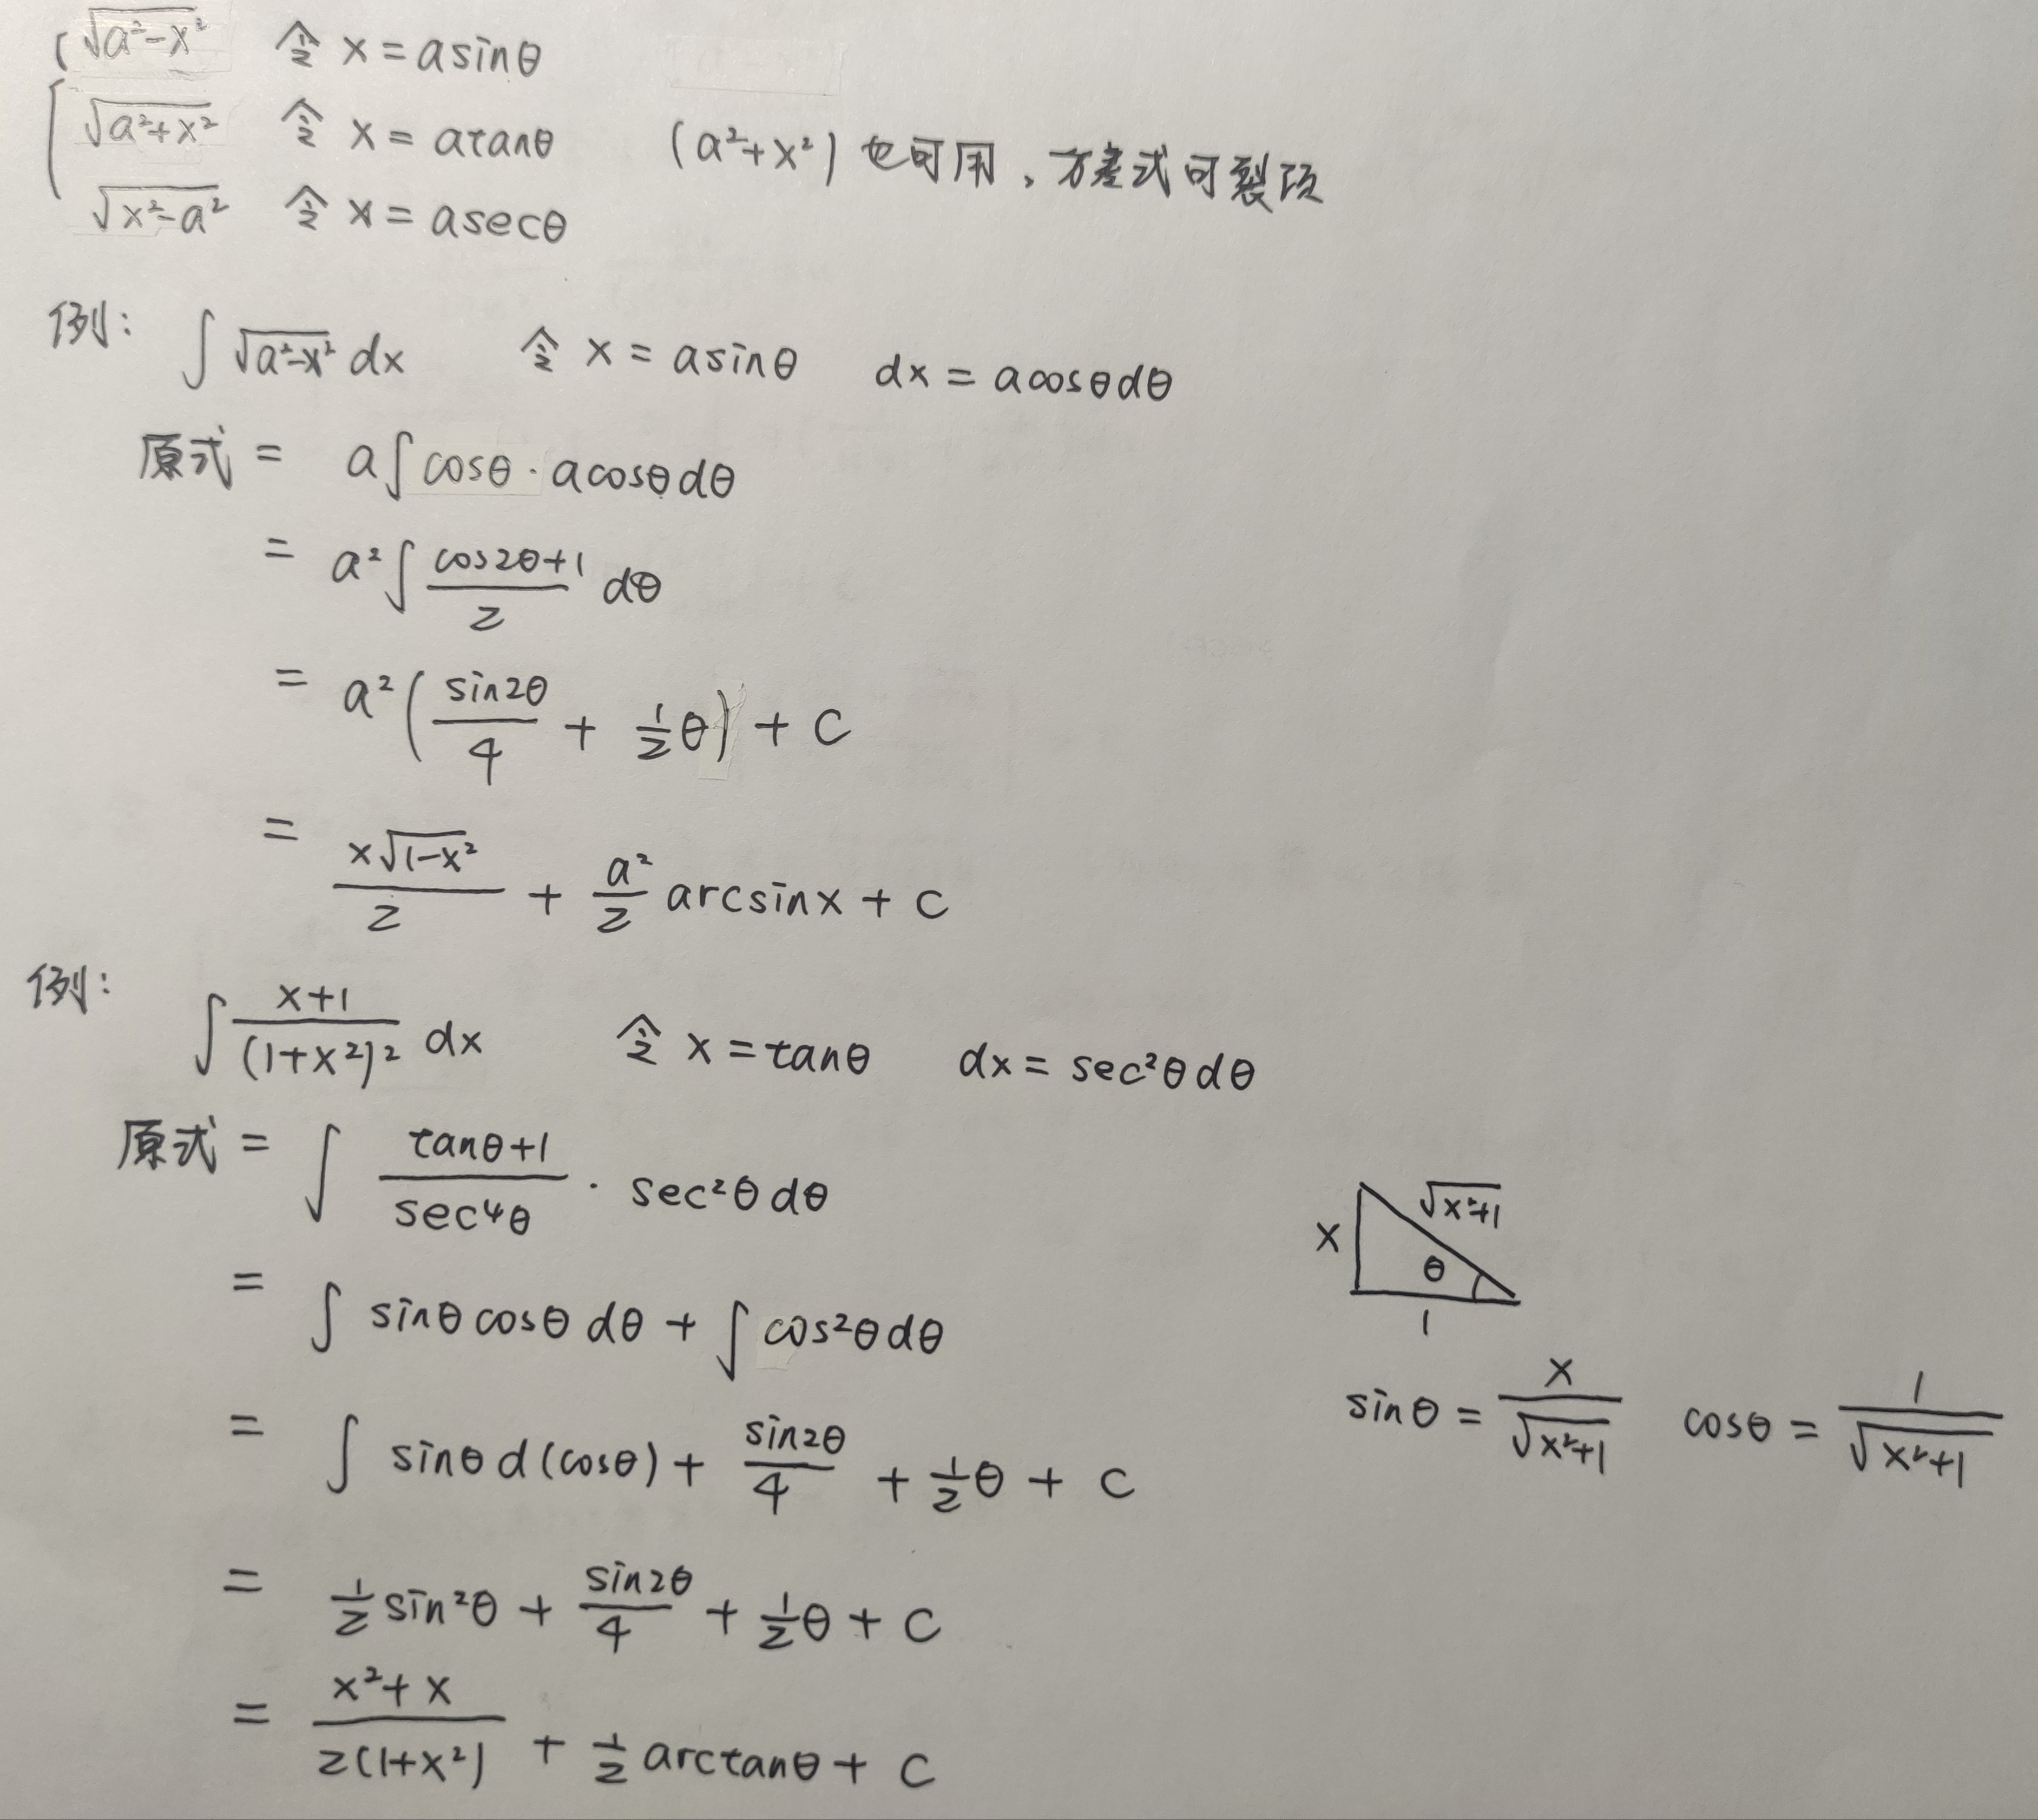 √(a²-x²) 令 x = asinθ
√(a²+x²) 令 x = atanθ (a²+x²) 也可用，方差式可裂项
√(x²-a²) 令 x = asecθ
例: ∫ √(a²-x²) dx 令 x = asinθ dx = acosθdθ
原式 = a∫cosθ · acosθdθ
= a²∫ (cos2θ+1)/2 dθ
= a²(sin2θ/4 + 1/2 θ) + C
= x√(1-x²)/2 + a²/2 arcsinx + C
例: ∫ (x+1)/(1+x²)² dx 令 x = tanθ dx = sec²θdθ
原式 = ∫ (tanθ+1)/sec⁴θ · sec²θdθ
x √(x²+1) θ 1
= ∫ sinθcosθdθ + ∫cos²θdθ
sinθ = x/√(x²+1) cosθ = 1/√(x²+1)
= ∫ sinθd(cosθ) + sin2θ/4 + 1/2 θ + C
= 1/2 sin²θ + sin2θ/4 + 1/2 θ + C
= (x²+x)/2(1+x²) + 1/2 arctanθ + C